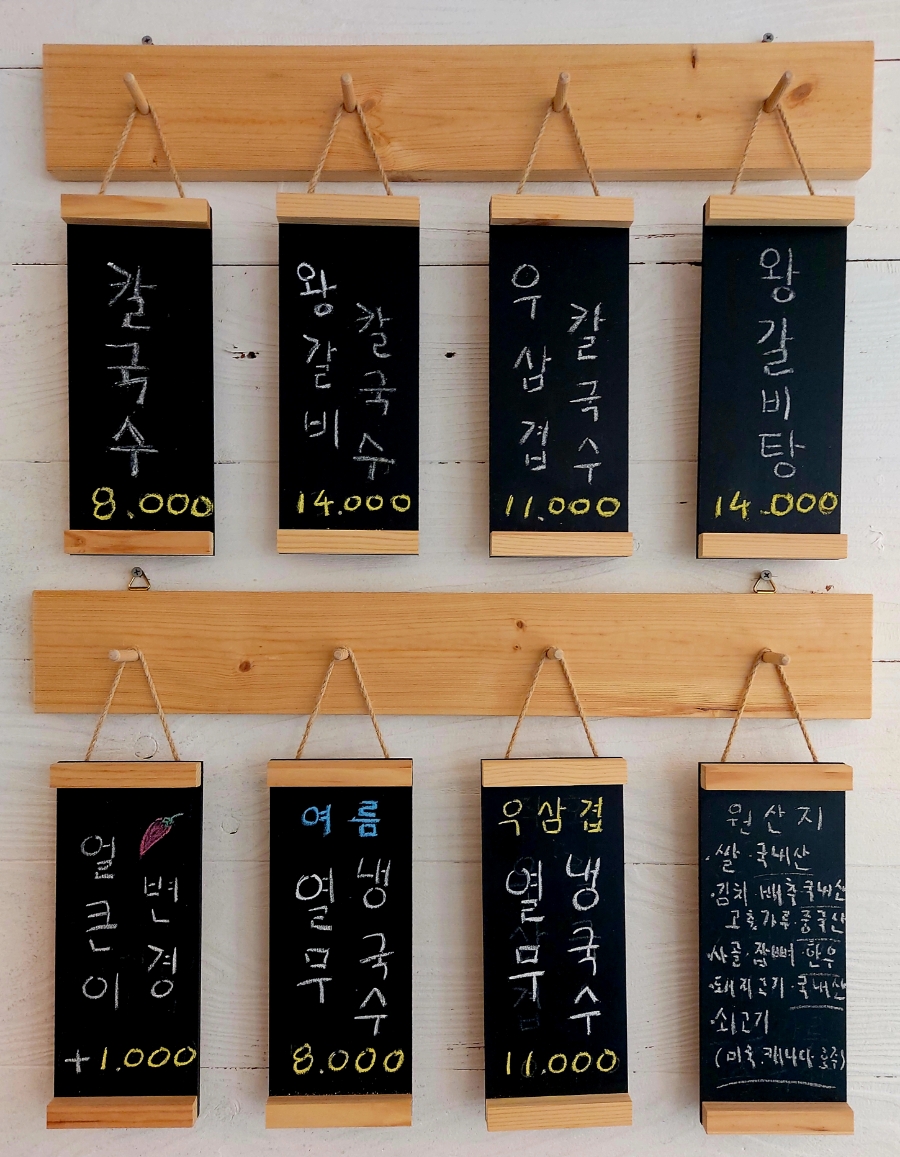 칼국수
8.000
왕갈비
칼국수
14.000
우삼겹
칼국수
11.000
왕갈비탕
14.000
얼큰이
변경
+1.000
여름
열무
냉국수
8.000
우삼겹
열무
냉국수
11.000
원산지
·쌀·국내산
·김치 배추국내산
고춧가루·중국산
·사골·잡뼈·한우
·돼지고기·국내산
·쇠고기
(미국.캐나다.호주)